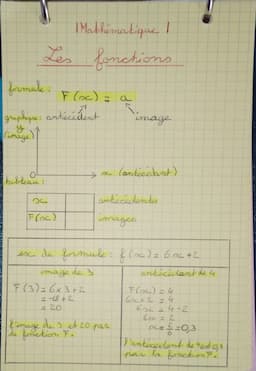 Mathématique 1
Les fonctions
formule : F(x) = a
antécédent image
graphique :
y (image)
0 x (antécédent)
tableau :
x antécédents
F(x) images
ex de formule : f(x) = 6x + 2
image de 3
F(3) = 6 x 3 + 2
= 18 + 2
= 20
l'image de 3 est 20 par
la fonction F.
antécédent de 4
F(x) = 4
6x + 2 = 4
6x = 4 - 2
6x = 2
= 0,3
l'antécédent de 4 est 0,3
par la fonction F.